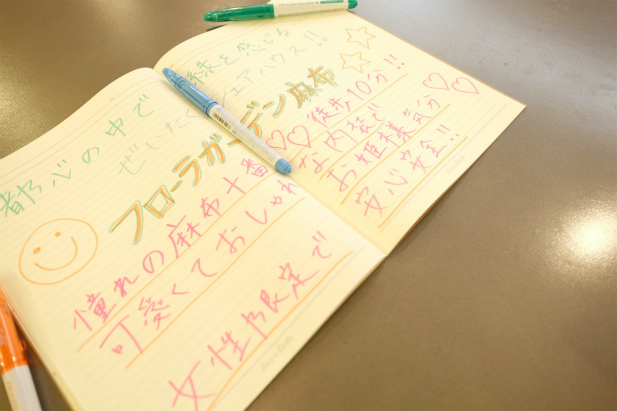 都心の中で緑を感じる
ぜいたくシェアハウス!!
フローラガーデン麻布
憧れの麻布十番徒歩10分!!
可愛くておしゃれな内装で
お姫様気分
女性限定で安心安全!!